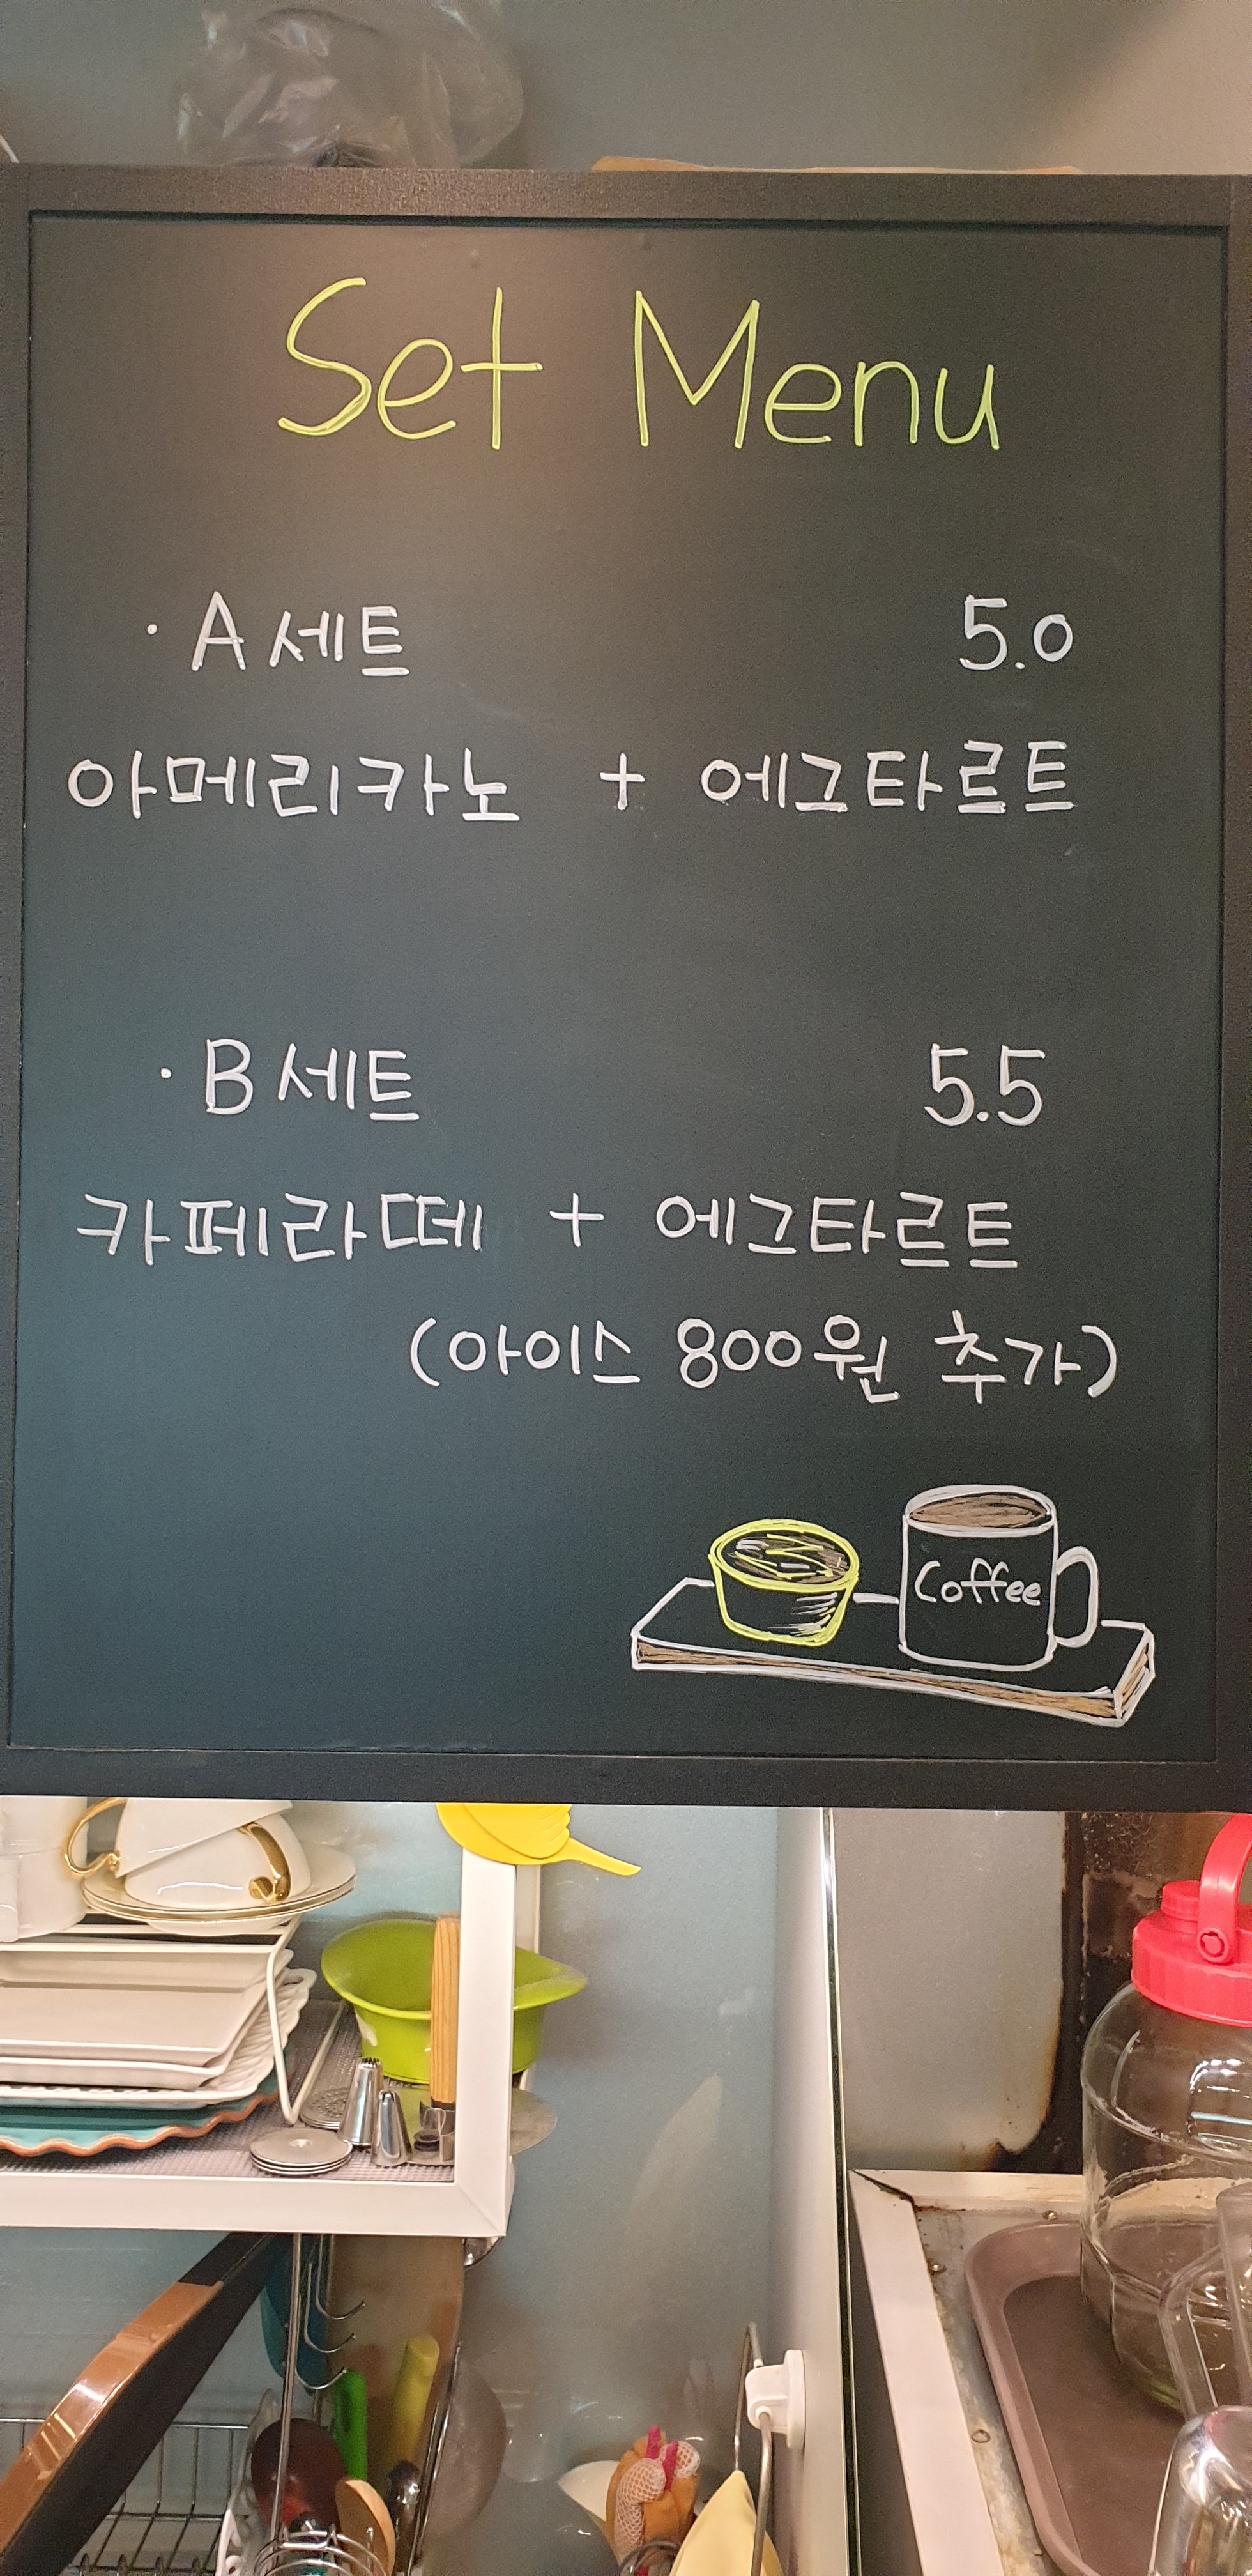 Set Menu
· A 세트 5.0
아메리카노 + 에그타르트
· B 세트 5.5
카페라떼 + 에그타르트
(아이스 800원 추가)
Coffee